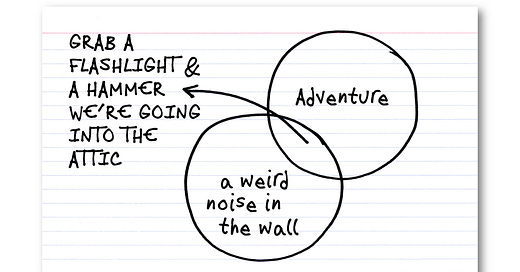 GRAB A
FLASHLIGHT &
A HAMMER
WE'RE GOING
INTO THE
ATTIC
Adventure
a weird
noise in
the wall